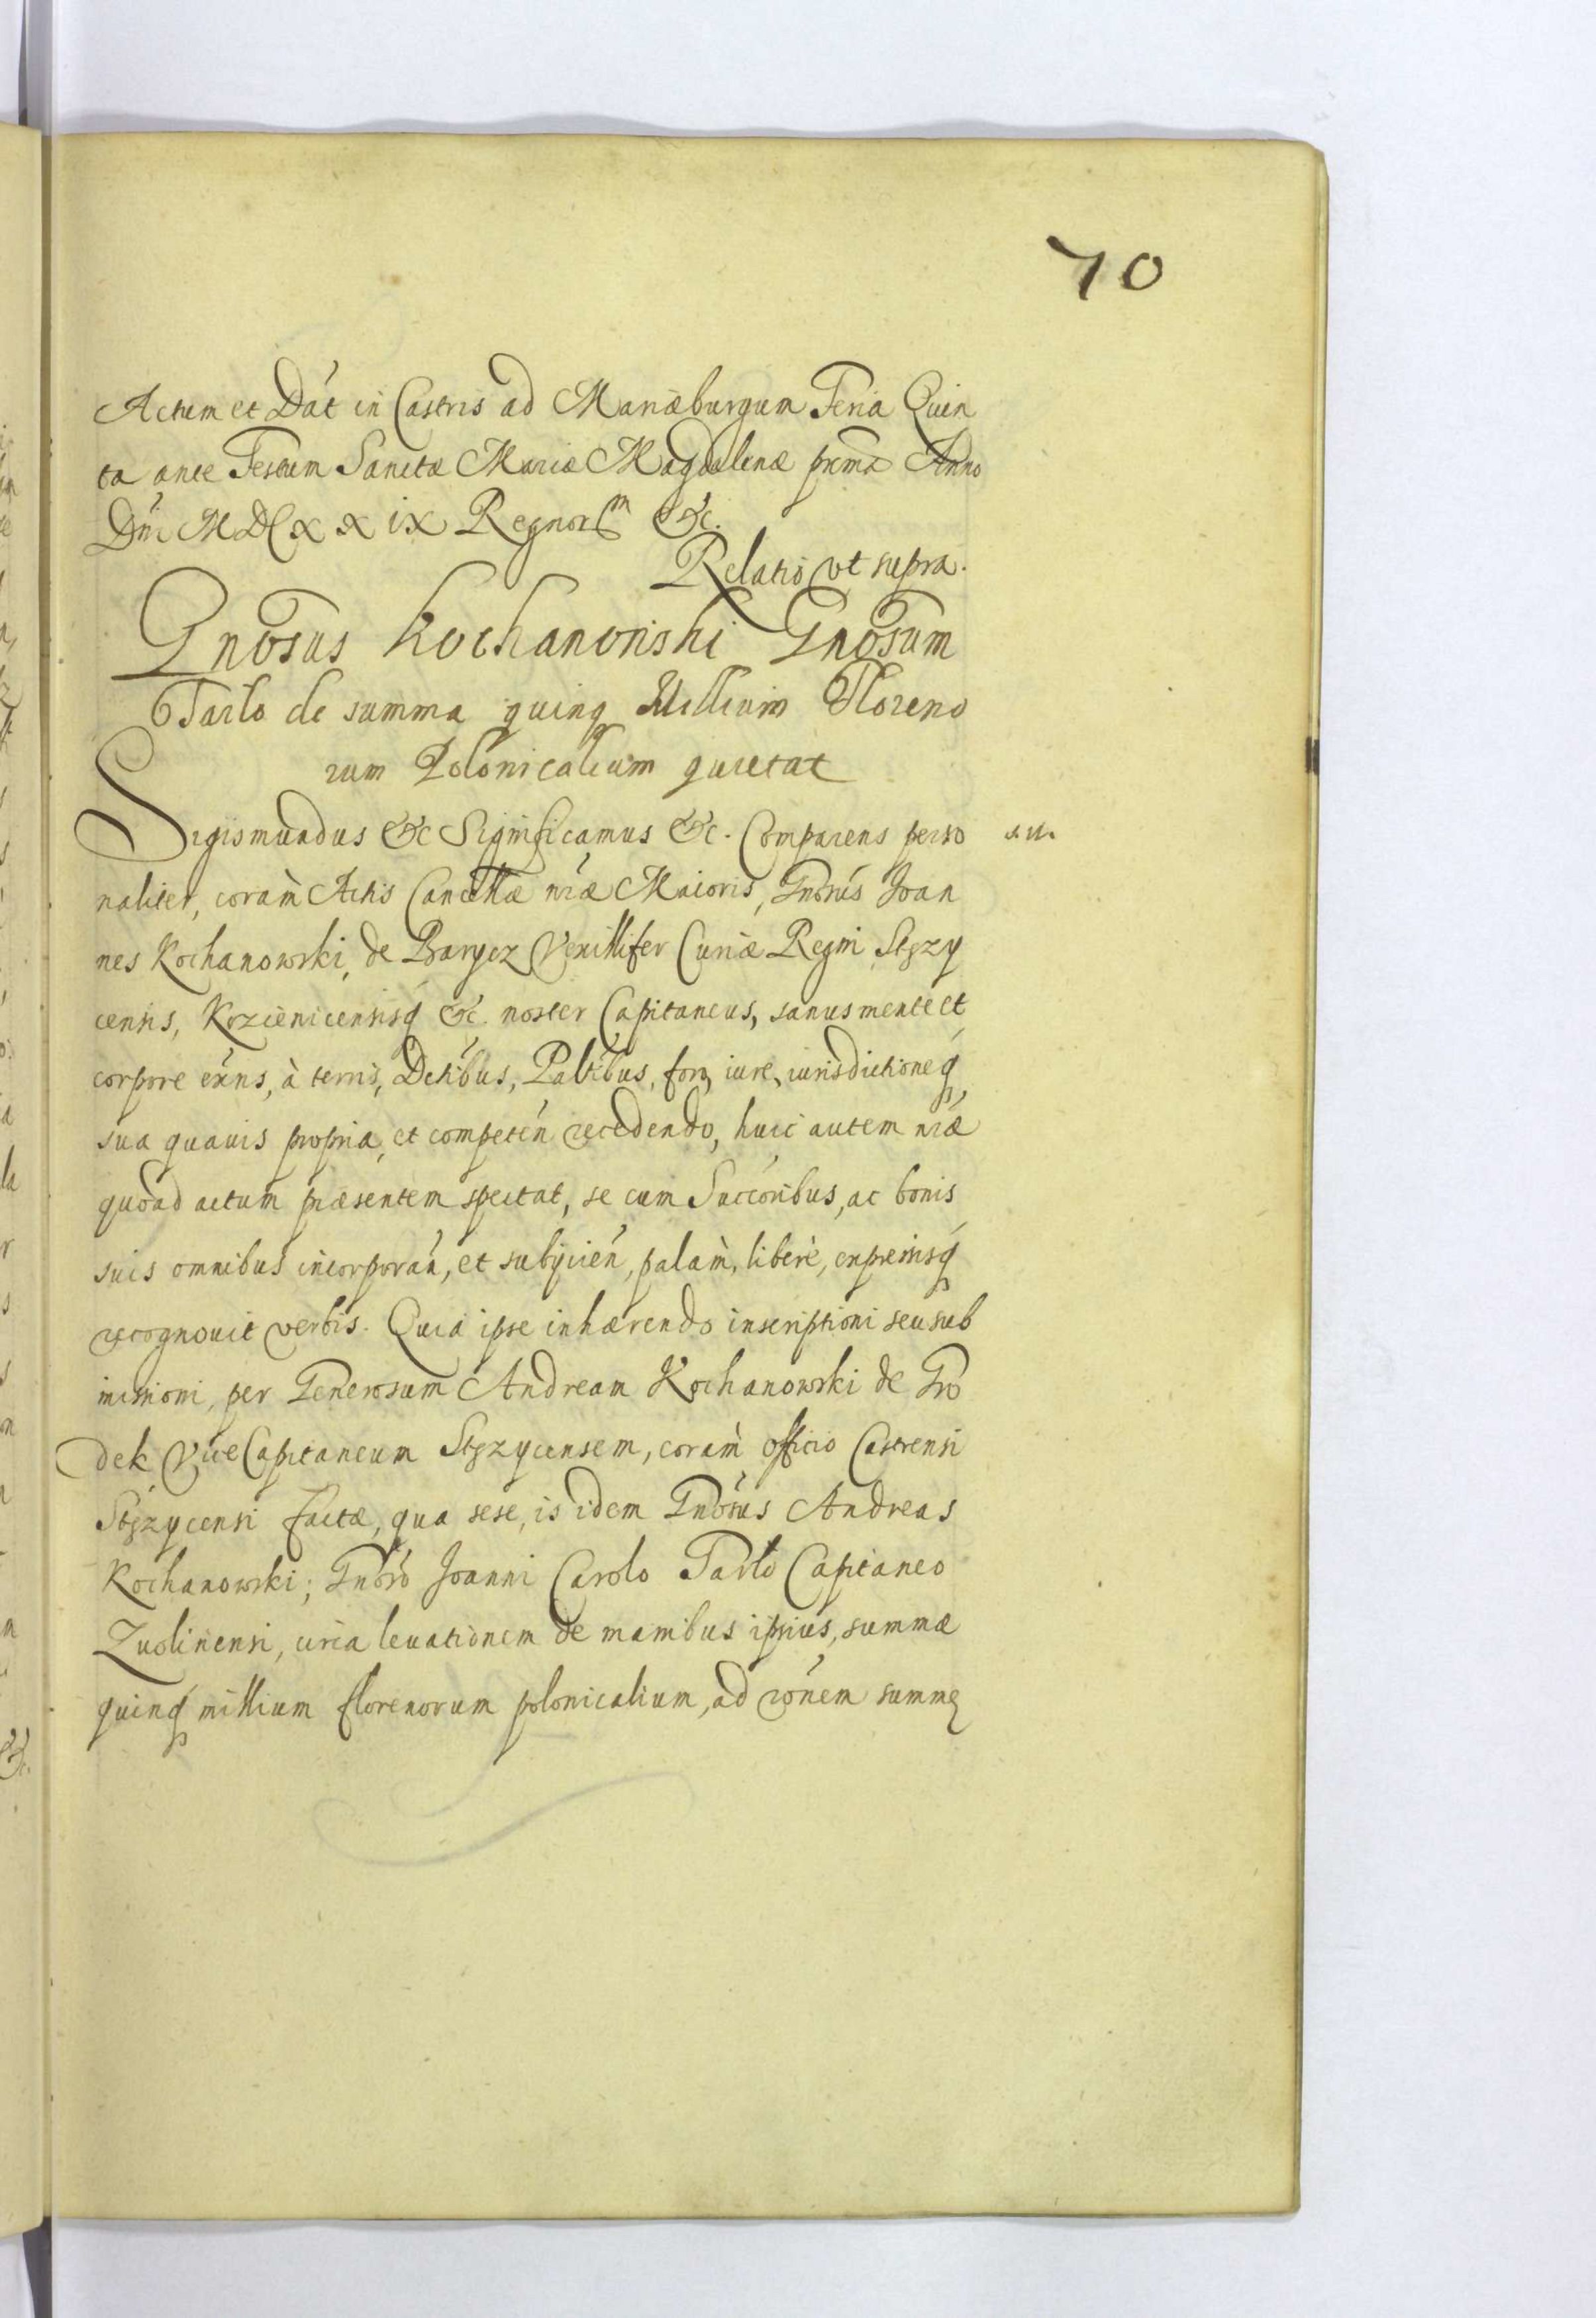 70
Actum et Dat́ in Castris ad Mariæburgum Feria Quin
ta ante Festum Sanctæ Mariæ Magdalenæ prima Anno
Dni MDCXXIX Regnorᵐ &c.
Relatio ut supra.
Gnosus Kochanowski Gnosum
Tarlo de summa quinq Millium Floreno
rum Polonicalium quietat
Sigismundus &c Significamus &c. Comparens perso
naliter, coram̀ Actis Cancellæ nræ Maioris, Gnosus Joan
nes Kochanowski, de Barycz Vexillifer Curiæ Regni Stęzy
censis, Kozienicensisq &c. noster Capitaneus, sanus mente et
corpore exns, à terris, Dctibus, Paltibus, foro, iure, iurisdictioneq
sua quavis propria, et competeń recedendo, huic autem nræ
quoad actum præsentem spectat, se cum Succoribus, ac bonis
suis omnibus incorporań, et subijcień, palam̀, liberè, expressisq
recognouit verbis. Quia ipse inhærendo inscriptioni seu sub
missioni, per Generosum Andream Kochanowski de Gro
dek Vice Capitaneum Stęzycensem, coram̀ officio Castrensi
Stęzycensi factæ, qua sese, is idem Gnosus Andreas
Kochanowski; Gnoso Joanni Carolo Tarło Capitaneo
Zwolinensi, circa levationem de manibus ipsius, summæ
quinq millium florenorum polonicalium, ad rónem summę